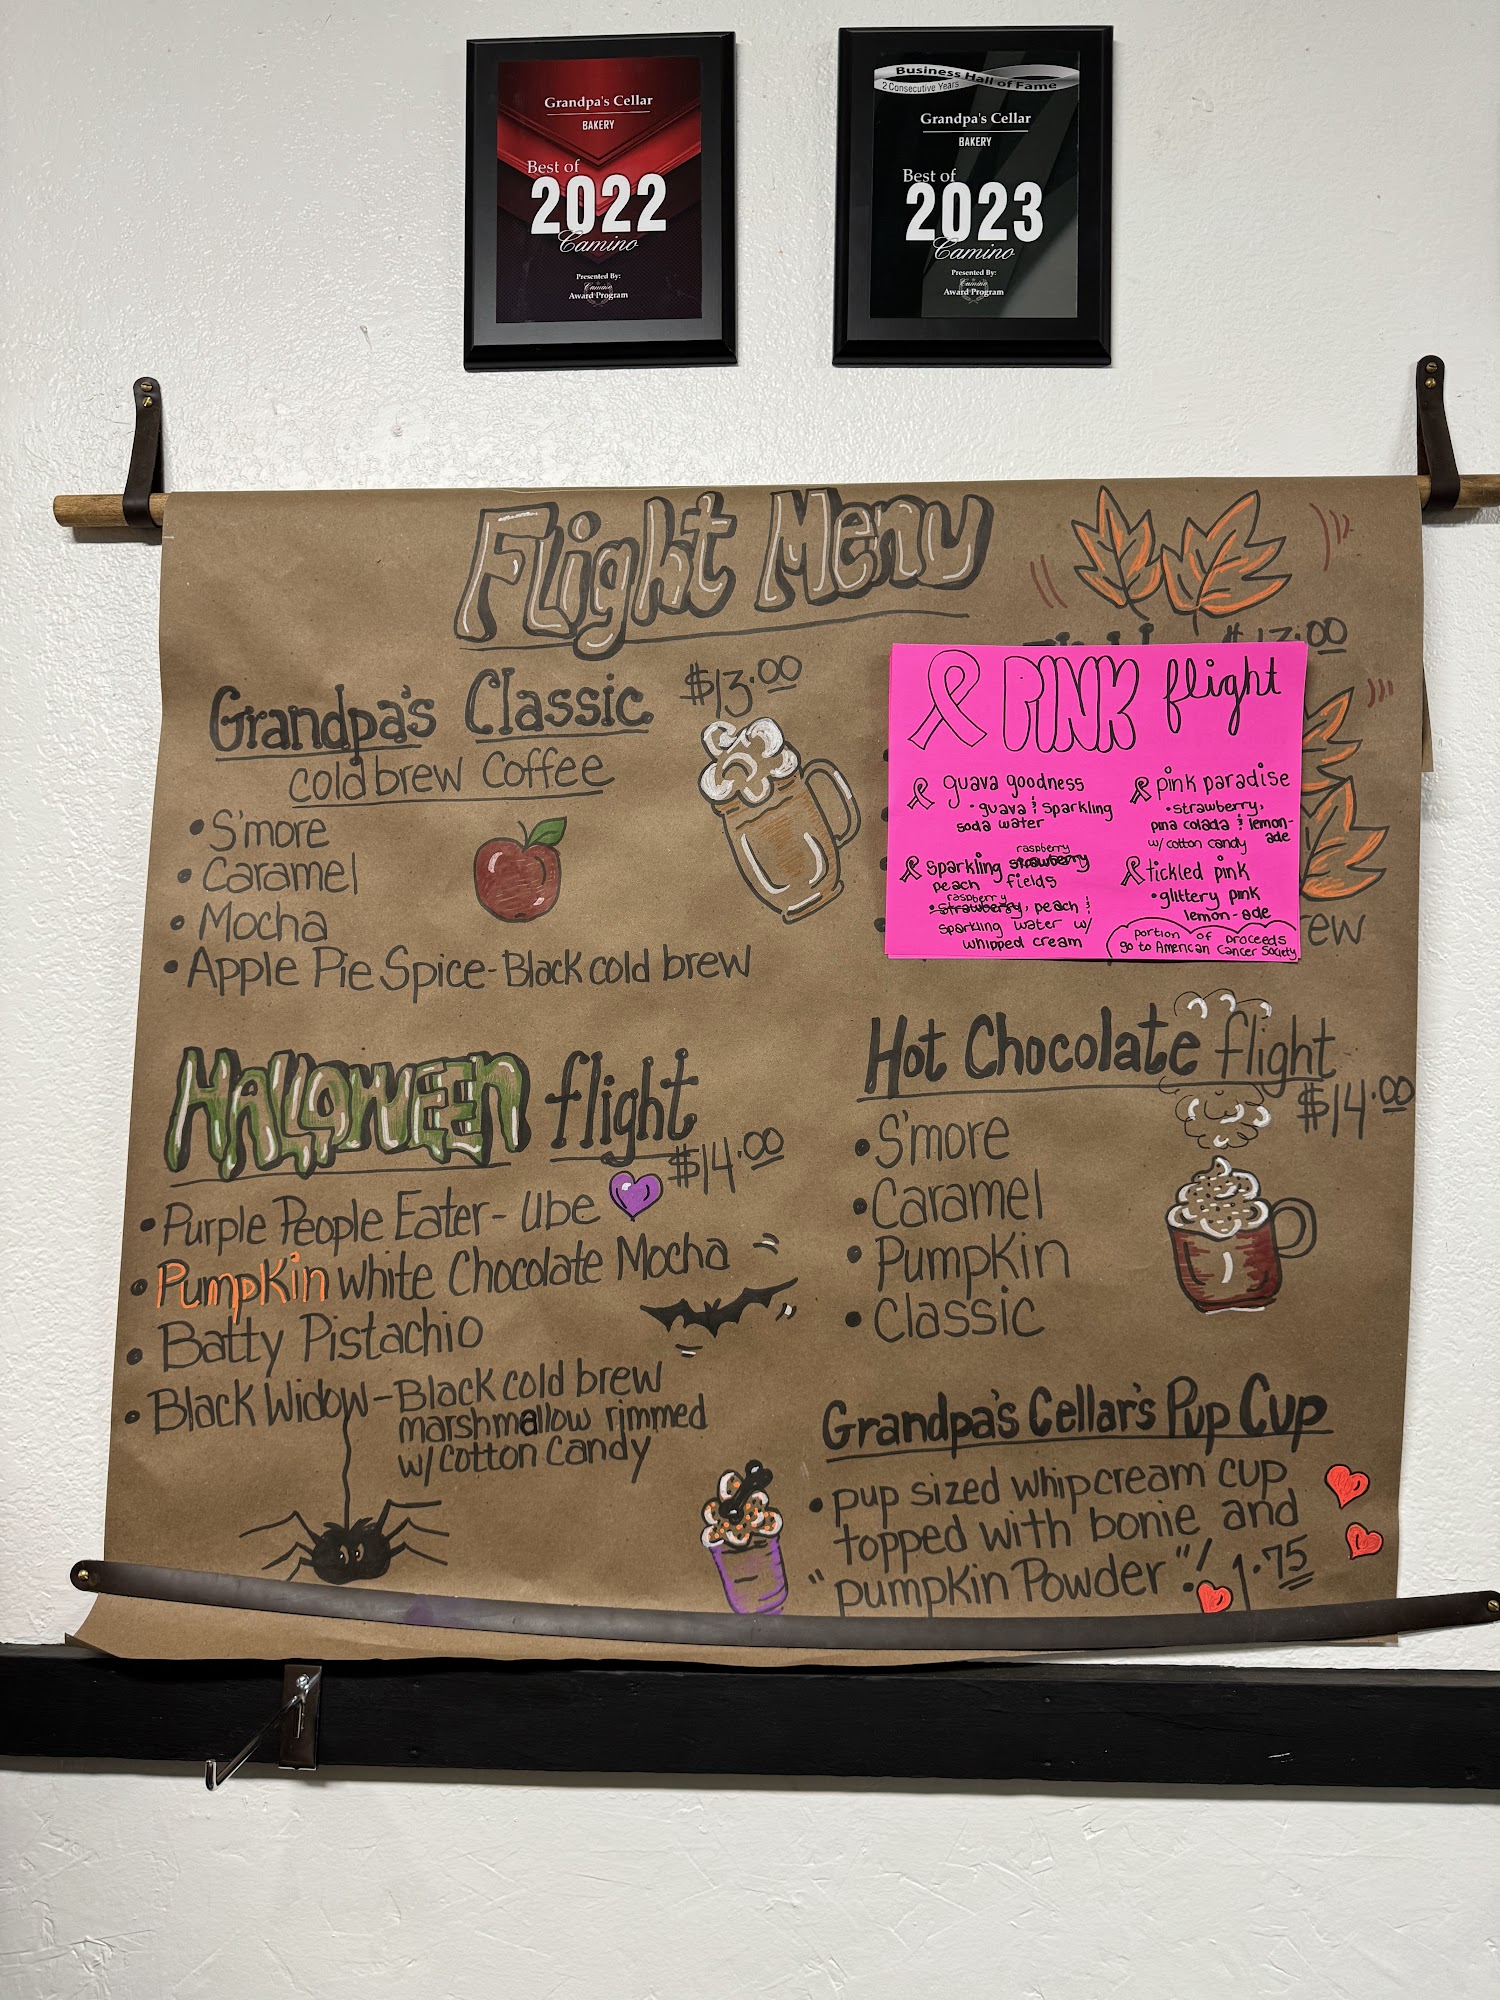 Grandpa's Cellar
BAKERY
Best of
2022
Camino
Presented By:
Camino
Award Program
Business Hall of Fame
2 Consecutive Years
Grandpa's Cellar
BAKERY
Best of
2023
Camino
Presented By:
Camino
Award Program
Flight Menu
Grandpa's Classic $13.00
cold brew Coffee
• S'more
• Caramel
• Mocha
• Apple Pie Spice - Black cold brew
HALLOWEEN flight
$14.00
• Purple People Eater - Ube
• Pumpkin white Chocolate Mocha
• Batty Pistachio
• Black Widow - Black cold brew
marshmallow rimmed
w/ Cotton Candy
PINK flight
guava goodness
• guava & sparkling
soda water
sparkling strawberry raspberry
peach fields
• strawberry raspberry, peach &
sparkling water w/
whipped cream
pink paradise
• strawberry,
pina colada & lemon-
ade
w/ cotton candy
tickled pink
• glittery pink
lemon-ade
portion of proceeds
go to American Cancer Society
Hot Chocolate flight
$14.00
• S'more
• Caramel
• Pumpkin
• Classic
Grandpa's Cellar's Pup Cup
• pup sized whipcream cup
topped with bonie and
"pumpkin Powder"! 1.75